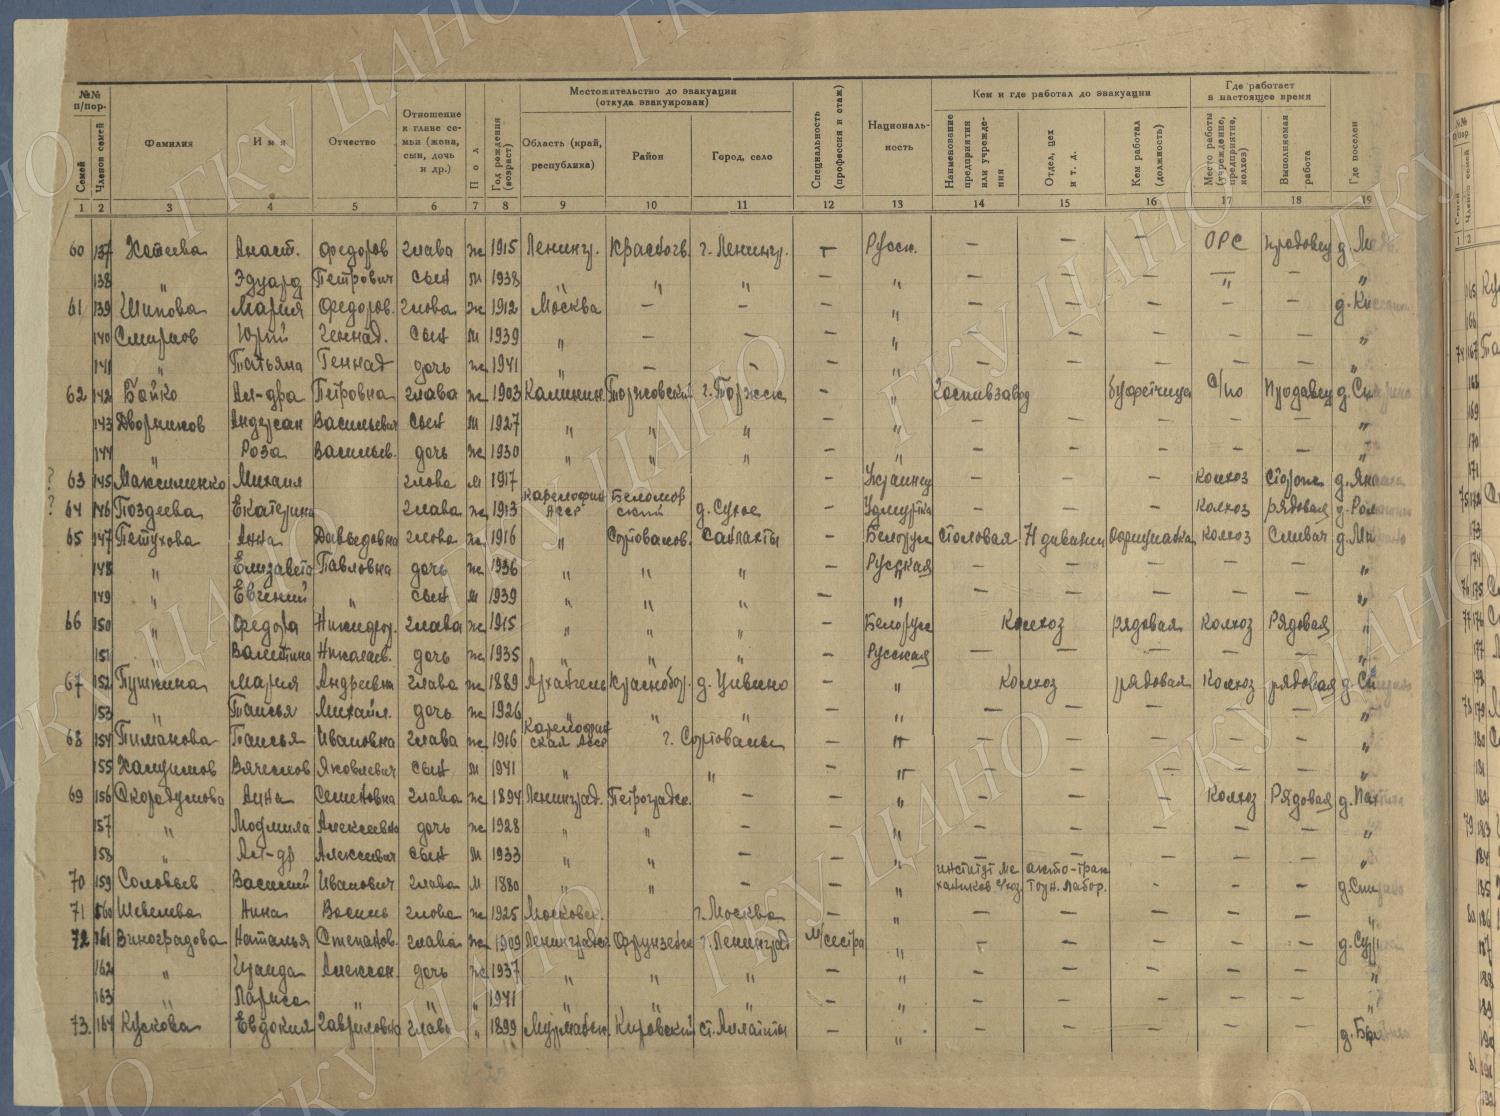 №№ п/пор-
Семей
Членов семей
Фамилия
Имя
Отчество
Отношение к главе семьи (жена, сын, дочь и др.)
Пол
Год рождения (возраст)
Местожительство до эвакуации (откуда эвакуирован)
Область (край, республика)
Район
Город, село
Специальность (профессия и стаж)
Националь- ность
Кем и где работал до эвакуации
Наименование предприятия или учрежде- ния
Отдел, цех и т. д.
Кем работал (должность)
Где работает в настоящее время
Место работы (учреждение, предприятие, колхоз)
Выполняемая работа
Где поселен
1 2 3 4 5 6 7 8 9 10 11 12 13 14 15 16 17 18 19
60 137 Хотеева Анаст. Федоров глава ж 1915 Ленингр. Красногв. г. Ленингр. — Русск. — — — ОРС продавец
138 " Эдуард Петрович сын м 1938 " " " — " — — — — — "
61 139 Шипова Мария Федоров. глава ж 1912 Москва — — — " — — — " —
140 Смирнов Юрий Геннад. сын м 1939 " — — — " — — — — — "
141 " Татьяна Геннад дочь ж 1941 " — — — " — — — — — "
62 142 Бойко Ал-дра Петровна глава ж 1903 Калинин. Торжовский г. Торжок — " Госпивзавод буфетчица с/по Продавец
143 Дворников Андерсан Васильевич сын м 1927 " " " — " — — — — — "
144 " Роза Васильев. дочь ж 1930 " " " — " — — — — — "
? 63 145 Максименко Михаил глава м 1917 Украинец колхоз сторож
? 64 146 Поздеева Екатерина глава ж 1913 Карелофин АССР Беломорский д. Сухое — Удмуртка — — — колхоз рядовая
65 147 Петухова Анна Давыдовна глава ж 1916 " Сортовалов. — Белорус столовая официантка колхоз
148 " Елизавета Павловна дочь ж 1936 " " " — Русская — — — — — "
149 " Евгений " сын м 1939 " " " — " — — — — — "
66 150 " Федора Никифор. глава ж 1915 " " " — Белорус Колхоз рядовая колхоз Рядовая "
151 " Валентина Николаев. дочь ж 1935 " " " — Русская — — — — — "
67 152 Пушкина Мария Андреевна глава ж 1889 Архангель Краснобор. д. Цивино — " Колхоз рядовая колхоз рядовая
153 " Таисья Михайл. дочь ж 1926 " " " — " — — — — — "
68 154 Пиманова Таисья Ивановна глава ж 1916 Карелофинская АССР г. Сортовалы — " — — — — — "
155 Халимов Вячеслов Яковлевич сын м 1941 " " — " — — — — — "
69 156 Скородумова Анна Семеновна глава ж 1894 Ленинград. Петроградск. — — " — — — Колхоз Рядовая
157 " Людмила Алексеевна дочь ж 1928 " " — — " — — — — — "
158 " Ал-др Алексеевич сын м 1933 " " — — " — — — — — "
70 159 Соловьев Василий Иванович глава м 1880 " " — — " институт механиков с/хоз авто-трак — — —
71 160 Шевелева Анна Василь глова ж 1925 Московск. г. Москва — " — — — — — "
72 161 Виноградова Наталья Степанов. глава ж 1909 Ленинградск. Фрунзенск г. Ленинград м/сестра " — — — — —
162 " Ираида Алексан. дочь ж 1937 " " " — " — — — — — "
163 " Лариса " " " 1941 " " " — " — — — — — "
73. 164 Кускова Евдокия Гавриловна глава " 1899 Мурманск. Кировский ст. Апатиты — " — — — — —
ГКУ ЦАНО